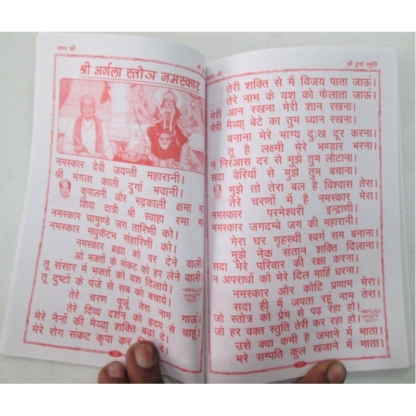 श्री अर्गला स्तोत्र नमस्कार
नमस्कार देवी जयन्ती महारानी।
श्री मंगला काली दुर्गा भवानी।
कृपालनी और भद्रकाली क्षमा मां
शिवा दात्री श्री स्वाहा रमा मां
नमस्कार चामुण्डे जग तारिणी को।
नमस्कार मधुकैटभ संहारिणी को।
नमस्कार ब्रह्मा को वर देने वाली
ओ भक्तों के संकट को हर लेने वाली
तू संसार में भक्तों को यश दिलाये।
तू दुष्टों के पंजे से सब को बचाये।
तेरे चरण पूजूं तेरा नाम गाऊं
तेरे दिव्य दर्शन को हृदय से चाहूं।
मेरे नैनों की मैय्या शक्ति बढ़ा दे।
मेरे रोग संकट कृपा कर
श्री दुर्गा स्तुति
तेरी शक्ति से मैं विजय पाता जाऊं।
तेरे नाम के यश को फैलाता जाऊं।
मेरी आन रखना मेरी शान रखना।
मेरी मैय्या बेटे का तुम ध्यान रखना।
बनाना मेरे भाग्य दुःख दूर करना।
तू है लक्ष्मी मेरे भण्डार भरना।
न निरआस दर से मुझे तुम लौटाना।
सदा वैरियों से मुझे तुम बचाना।
मुझे तो तेरा बल है विश्वास तेरा।
तेरे चरणों में है नमस्कार मेरा।
नमस्कार परमेश्वरी इन्द्राणी।
नमस्कार जगदम्बे जग की महारानी।
मेरा घर गृहस्थी स्वर्ग सम बनाना।
मुझे नेक संतान शक्ति दिलाना।
सदा मेरे परिवार की रक्षा करना।
न अपराधों को मेरे दिल माहिं धरना।
नमस्कार और कोटि प्रणाम मेरा।
सदा ही मैं जपता रहूं नाम तेरा।
जो स्तोत्र को प्रेम से पढ़ रहा हो।
जो हर वक्त स्तुति तेरी कर रहा हो।
उसे क्या कमी है जमाने में माता।
भरे सम्पति कुल खजाने में माता।